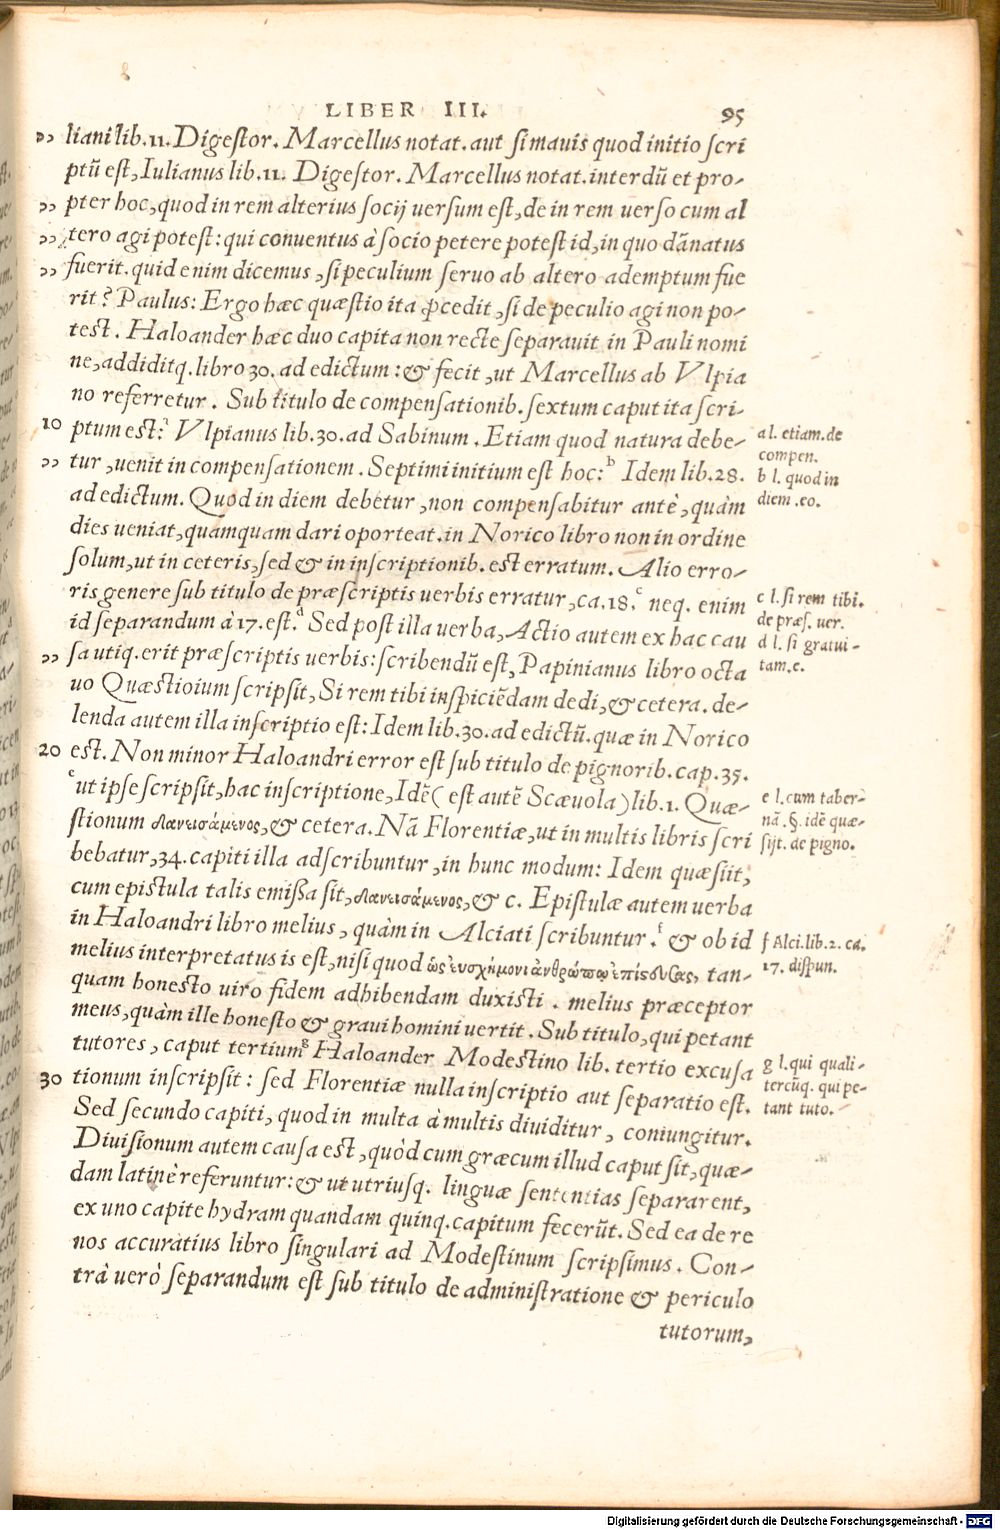 LIBER III. 95
„ liani lib. 11. Digestor. Marcellus notat. aut si mauis quod initio scri
ptū est, Iulianus lib. 11. Digestor. Marcellus notat. interdū et pro-
„ pter hoc, quod in rem alterius socij uersum est, de in rem uerso cum al
„ tero agi potest: qui conuentus à socio petere potest id, in quo dānatus
„ fuerit. quid enim dicemus, si peculium seruo ab altero ademptum fue
rit? Paulus: Ergo hæc quæstio ita ꝓcedit, si de peculio agi non po-
test. Haloander hæc duo capita non recte separauit in Pauli nomi
ne, addiditq. libro 30. ad edictum: & fecit, ut Marcellus ab Vlpia
no referretur. Sub titulo de compensationib. sextum caput ita scri-
10 ptum est:ᵃ Vlpianus lib. 30. ad Sabinum. Etiam quod natura debe-
„ tur, uenit in compensationem. Septimi initium est hoc:ᵇ Idem lib. 28.
ad edictum. Quod in diem debetur, non compensabitur antè, quàm
dies ueniat, quamquam dari oporteat. in Norico libro non in ordine
solum, ut in ceteris, sed & in inscriptionib. est erratum. Alio erro-
ris genere sub titulo de præscriptis uerbis erratur, ca. 18.ᶜ neq. enim
id separandum à 17. est.ᵈ Sed post illa uerba, Actio autem ex hac cau
„ sa utiq. erit præscriptis uerbis: scribendū est, Papinianus libro octa
uo Quæstioium scripsit, Si rem tibi inspiciēdam dedi, & cetera. de-
lenda autem illa inscriptio est: Idem lib. 30. ad edictū. quæ in Norico
20 est. Non minor Haloandri error est sub titulo de pignorib. cap. 35.
ᵉut ipse scripsit, hac inscriptione, Idē ( est autē Scæuola ) lib. 1. Quæ-
stionum διανεισάμενος, & cetera. Nā Florentiæ, ut in multis libris scri
bebatur, 34. capiti illa adscribuntur, in hunc modum: Idem quæsiit,
cum epistula talis emissa sit, διανεισάμενος, & c. Epistulæ autem uerba
in Haloandri libro melius, quàm in Alciati scribuntur.ᶠ & ob id
melius interpretatus is est, nisi quod ὡς εὐσχήμονι ἀνθρώπῳ ἐπίστευσας, tan-
quam honesto uiro fidem adhibendam duxisti. melius præceptor
meus, quàm ille honesto & graui homini uertit. Sub titulo, qui petant
tutores, caput tertiumᵍ Haloander Modestino lib. tertio excusa
30 tionum inscripsit: sed Florentiæ nulla inscriptio aut separatio est.
Sed secundo capiti, quod in multa à multis diuiditur, coniungitur.
Diuisionum autem causa est, quòd cum græcum illud caput sit, quæ-
dam latinè referuntur: & ut utriusq. linguæ sententias separarent,
ex uno capite hydram quandam quinq. capitum fecerūt. Sed ea de re
nos accuratius libro singulari ad Modestinum scripsimus. Con-
trà uerò separandum est sub titulo de administratione & periculo
tutorum,
a l. etiam. de
compen.
b l. quod in
diem. eo.
c l. si rem tibi.
de præs. uer.
d l. si gratui-
tam. e.
e l. cum taber-
nā. §. idē quæ-
sijt. de pigno.
f Alci. lib. 2. ca.
17. dispun.
g l. qui quali-
tercūq. qui pe-
tant tuto.
Digitalisierung gefördert durch die Deutsche Forschungsgemeinschaft - DFG